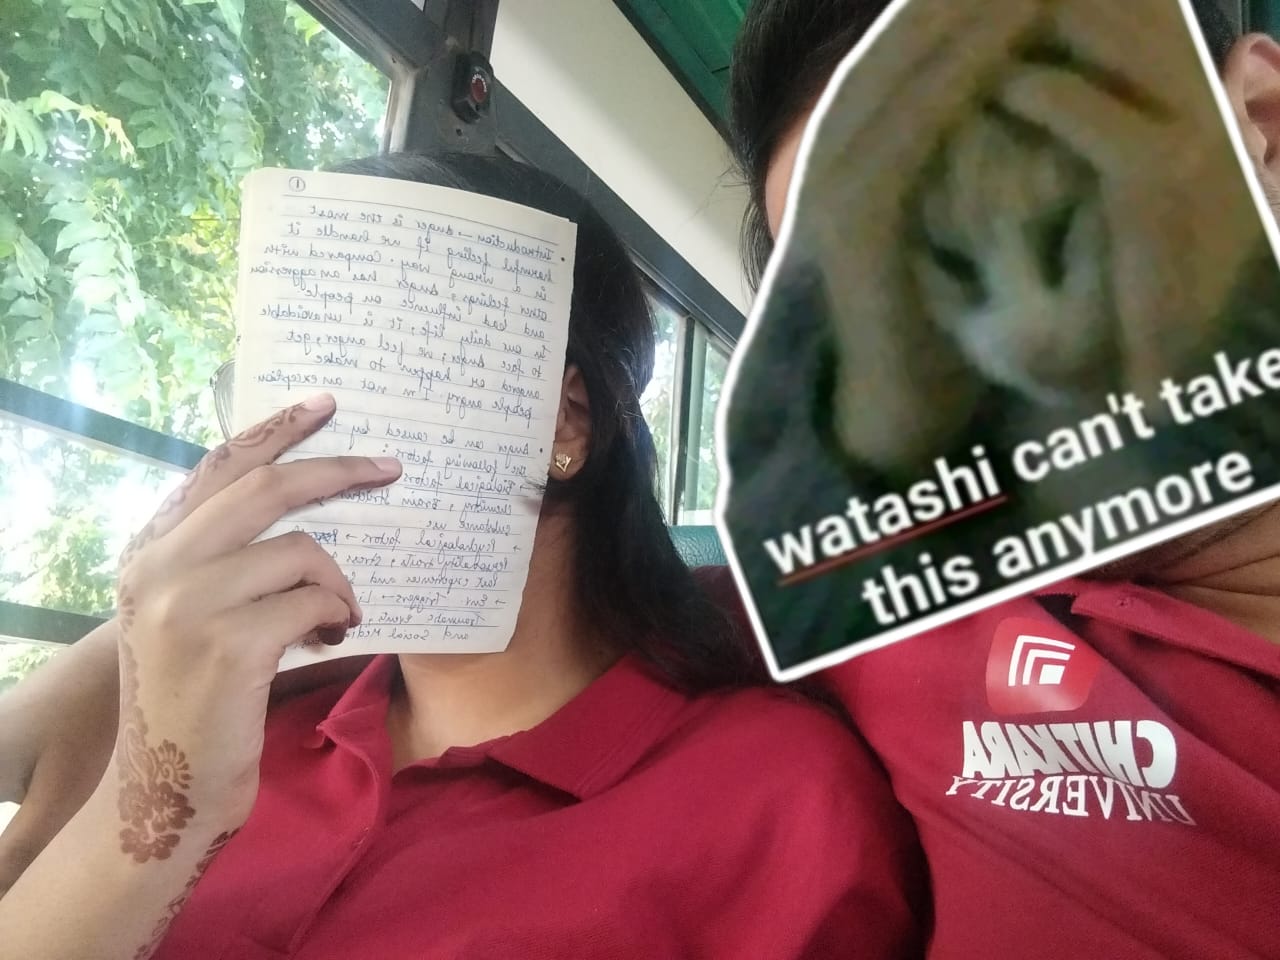 1
Introduction → Anger is the most
harmful feeling if we handle it
in a wrong way. Compared with
other feelings, Anger has an aggression
and bad influence on people
in our daily life, it is unavoidable
to face anger, we feel anger, get
angered or happen to make
people angry. I'm not an exception.
Anger can be caused by
the following factors:
→ Biological factors
Chemistry, Brain Structure
Substance use
→ Psychological factors →
Personality traits, stress
Past experiences and
→ Env. Triggers →
Traumatic Events,
and Social Media
watashi can't take
this anymore
CHITKARA
UNIVERSITY